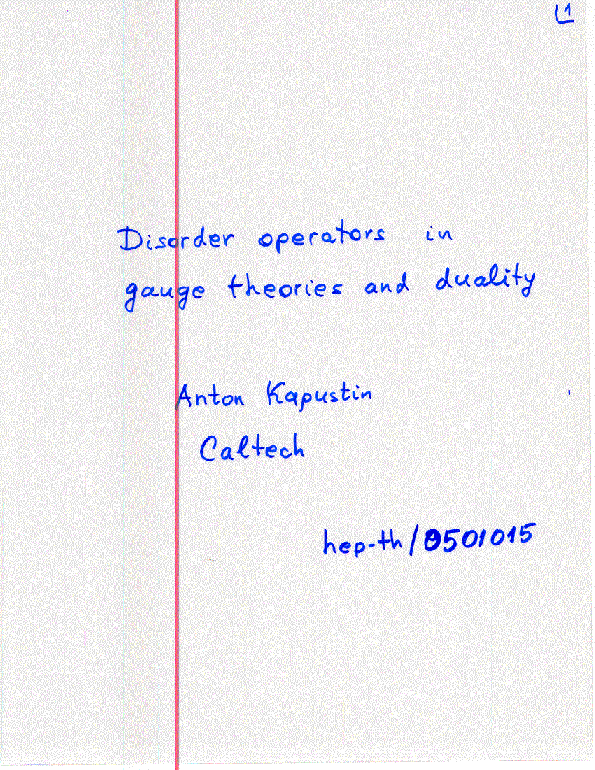 1
Disorder operators in
gauge theories and duality
Anton Kapustin
Caltech
hep-th/0501015